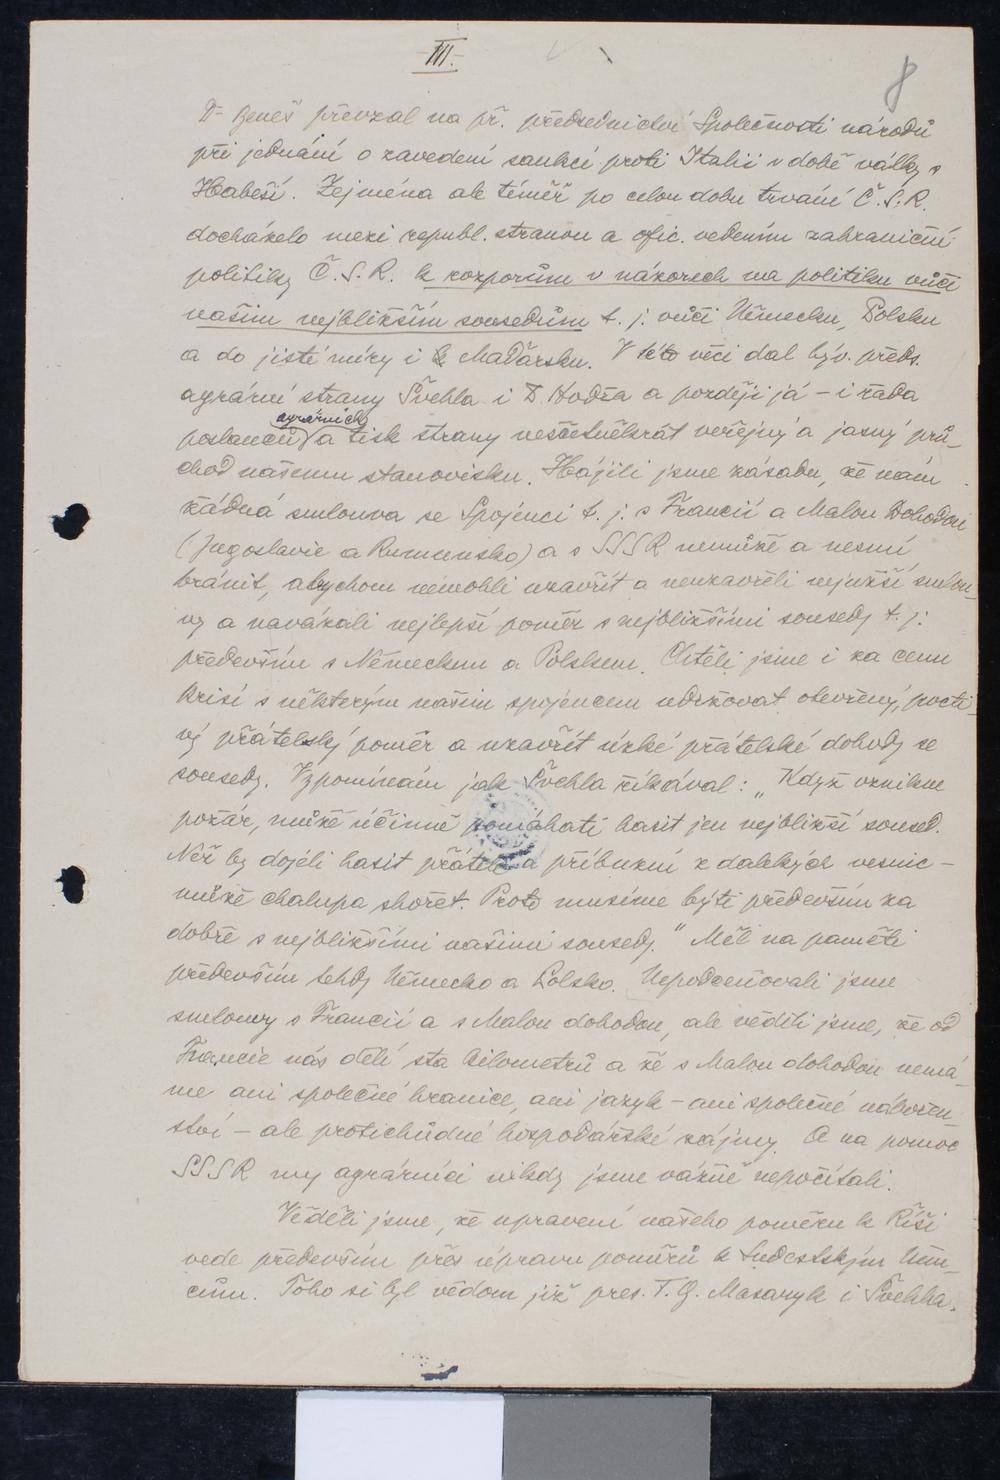 III.
8
Dr Beneš převzal na př. předsednictví Společnosti národů
při jednání o zavedení sankcí proti Italii v době války s
Habeší. Zejména ale téměř po celou dobu trvání Č.S.R.
docházelo mezi republ. stranou a ofic. vedením zahraniční
politiky Č.S.R. k rozporům v názorech na politiku vůči
našim nejbližším sousedům t. j. vůči Německu, Polsku
a do jisté míry i k Maďarsku. V této věci dal býv. předs.
agrární strany Švehla i D Hodža a později já – i řada
agrárních
poslanců a tisk strany nesčetněkrát veřejný a jasný prů-
chod našemu stanovisku. Hájili jsme zásadu, že nám
žádná smlouva se Spojenci t. j. s Francií a Malou Dohodou
(Jugoslavie a Rumunsko) a s SSSR nemůže a nesmí
bránit, abychom nemohli uzavřít a neuzavřeli nejužší smlou-
vy a navázali nejlepší poměr s nejbližšími sousedy t. j.
především s Německem a Polskem. Chtěli jsme i za cenu
krisí s některým naším spojencem udržovat otevřený, pocti-
vý přátelský poměr a uzavřít úzké přátelské dohody se
sousedy. Vzpomínám jak Švehla říkával: „Když vznikne
požár, může účinně pomáhati hasit jen nejbližší soused.
Než by dojeli hasit přátelé a příbuzní z dalekých vesnic –
může chalupa shořet. Proto musíme býti především za
dobře s nejbližšími našimi sousedy." Měl na paměti
především tehdy Německo a Polsko. Nepodceňovali jsme
smlouvy s Francií a s Malou dohodou, ale věděli jsme, že od
Francie nás dělí sta kilometrů a že s Malou dohodou nemá-
me ani společné hranice, ani jazyk – ani společné nábožen-
ství – ale protichůdné hospodářské zájmy. A na pomoc
SSSR my agrárníci nikdy jsme vážně nepočítali.
Věděli jsme, že upravení našeho poměru k Říši
vede především přes úpravu poměrů k Sudetským Něm-
cům. Toho si byl vědom již pres. T. G. Masaryk i Švehla.